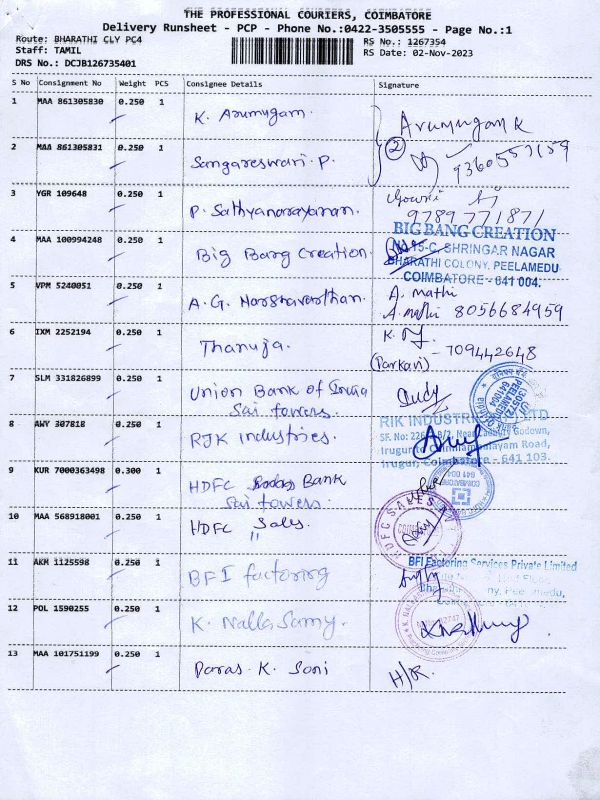 THE PROFESSIONAL COURIERS, COIMBATORE
Delivery Runsheet - PCP - Phone No.:0422-3505555 - Page No.:1
Route: BHARATHI CLY PC4
RS No.: 1267354
Staff: TAMIL
RS Date: 02-Nov-2023
DRS No.: DCJB126735401
S No Consignment No Weight PCS Consignee Details Signature
1 MAA 861305830 0.250 1 K. Arumugam. Arumugam K
2 MAA 861305831 0.250 1 Sangareswari. P. 2 9360557159
3 YGR 109648 0.250 1 P. Sathyanarayanan. Gowri
9789771871
4 MAA 100994248 0.250 1 Big Bang Creation.
BIG BANG CREATION
15-C, SHRINGAR NAGAR
BHARATHI COLONY, PEELAMEDU
COIMBATORE - 641 004.
5 VPM 5240051 0.250 1 A.G. Harshavarthan. A. mathi
A. mathi 8056684959
6 IXM 2252194 0.250 1 Thanuja. K.
(Parkavi) - 709442648
7 SLM 331826899 0.250 1 Union Bank of India
Sai towers.
8 AWY 307818 0.250 1 RJK industries.
RIK INDUSTRIES LTD
Irugur, Coimbatore - 641 103.
9 KUR 7000363498 0.300 1 HDFC Bank
Sai towers.
10 MAA 568918001 0.250 1 HDFC Sales.
"
HDFC SALES
11 AKM 1125598 0.250 1 BFI factoring
BFI Factoring Services Private Limited
12 POL 1590255 0.250 1 K. Nalla Samy.
13 MAA 101751199 0.250 1 Paras. K. Soni H/R.